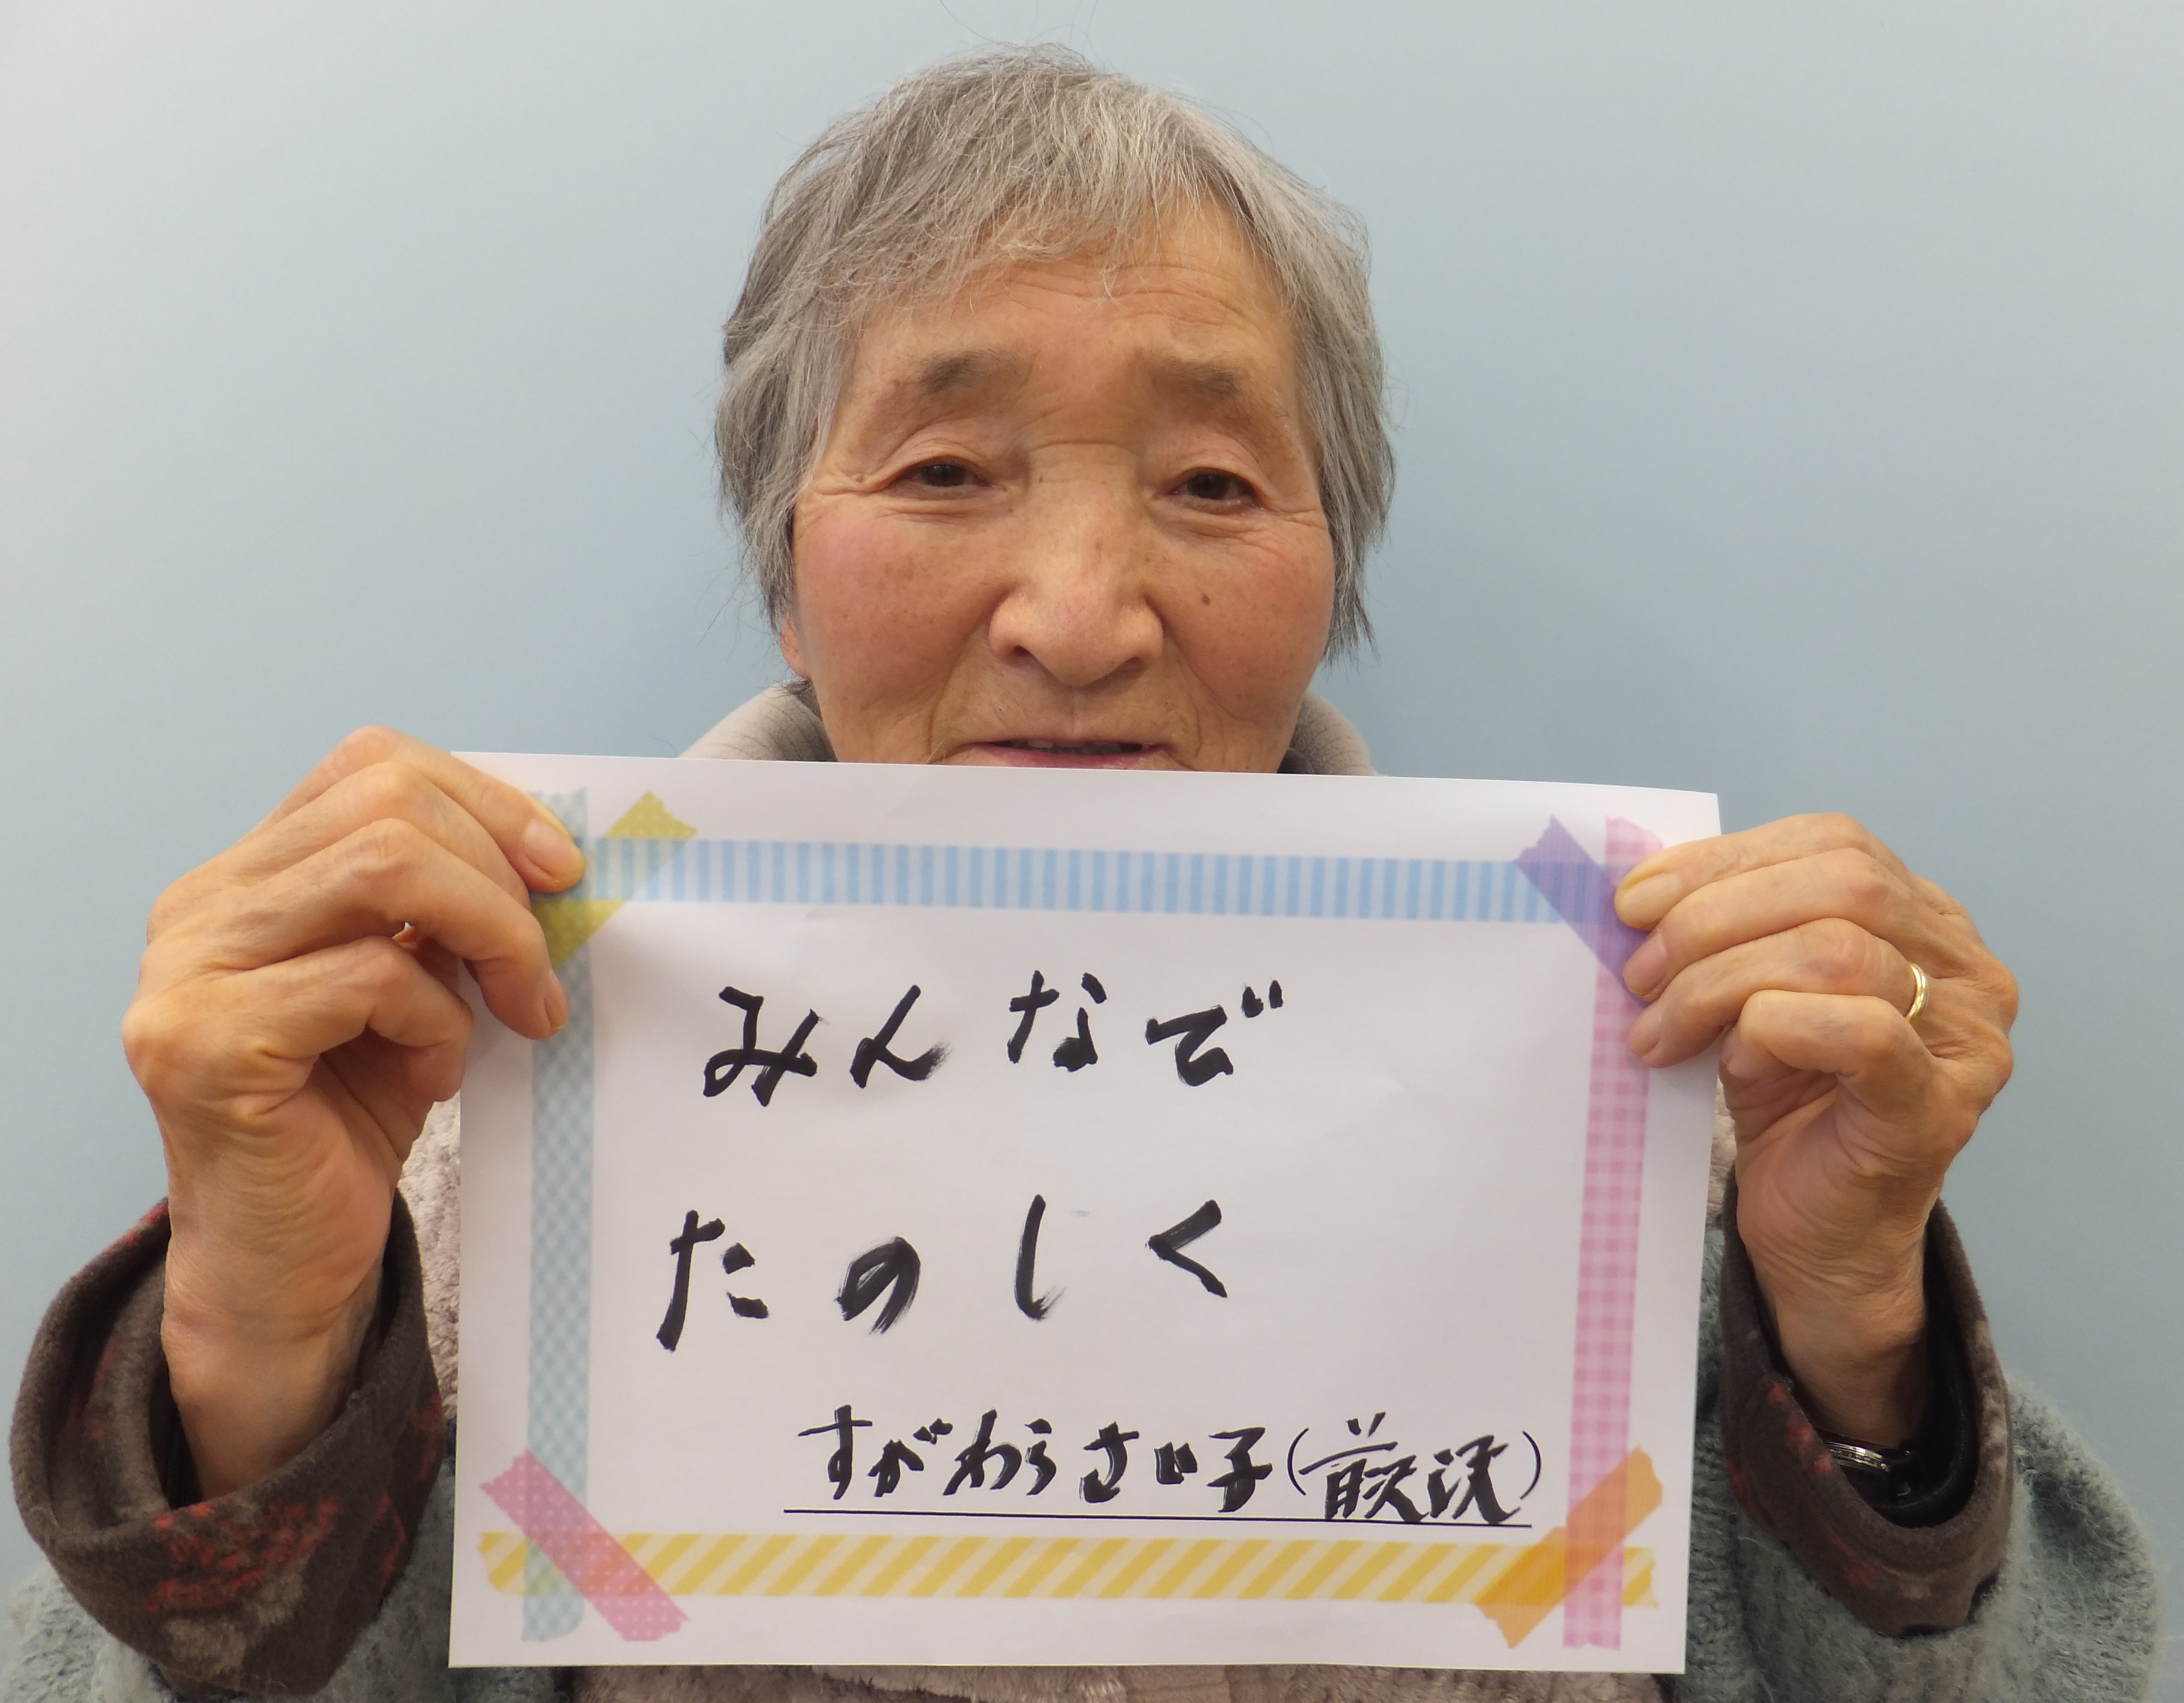 みんなで
たのしく
すがわらさい子(前沢)